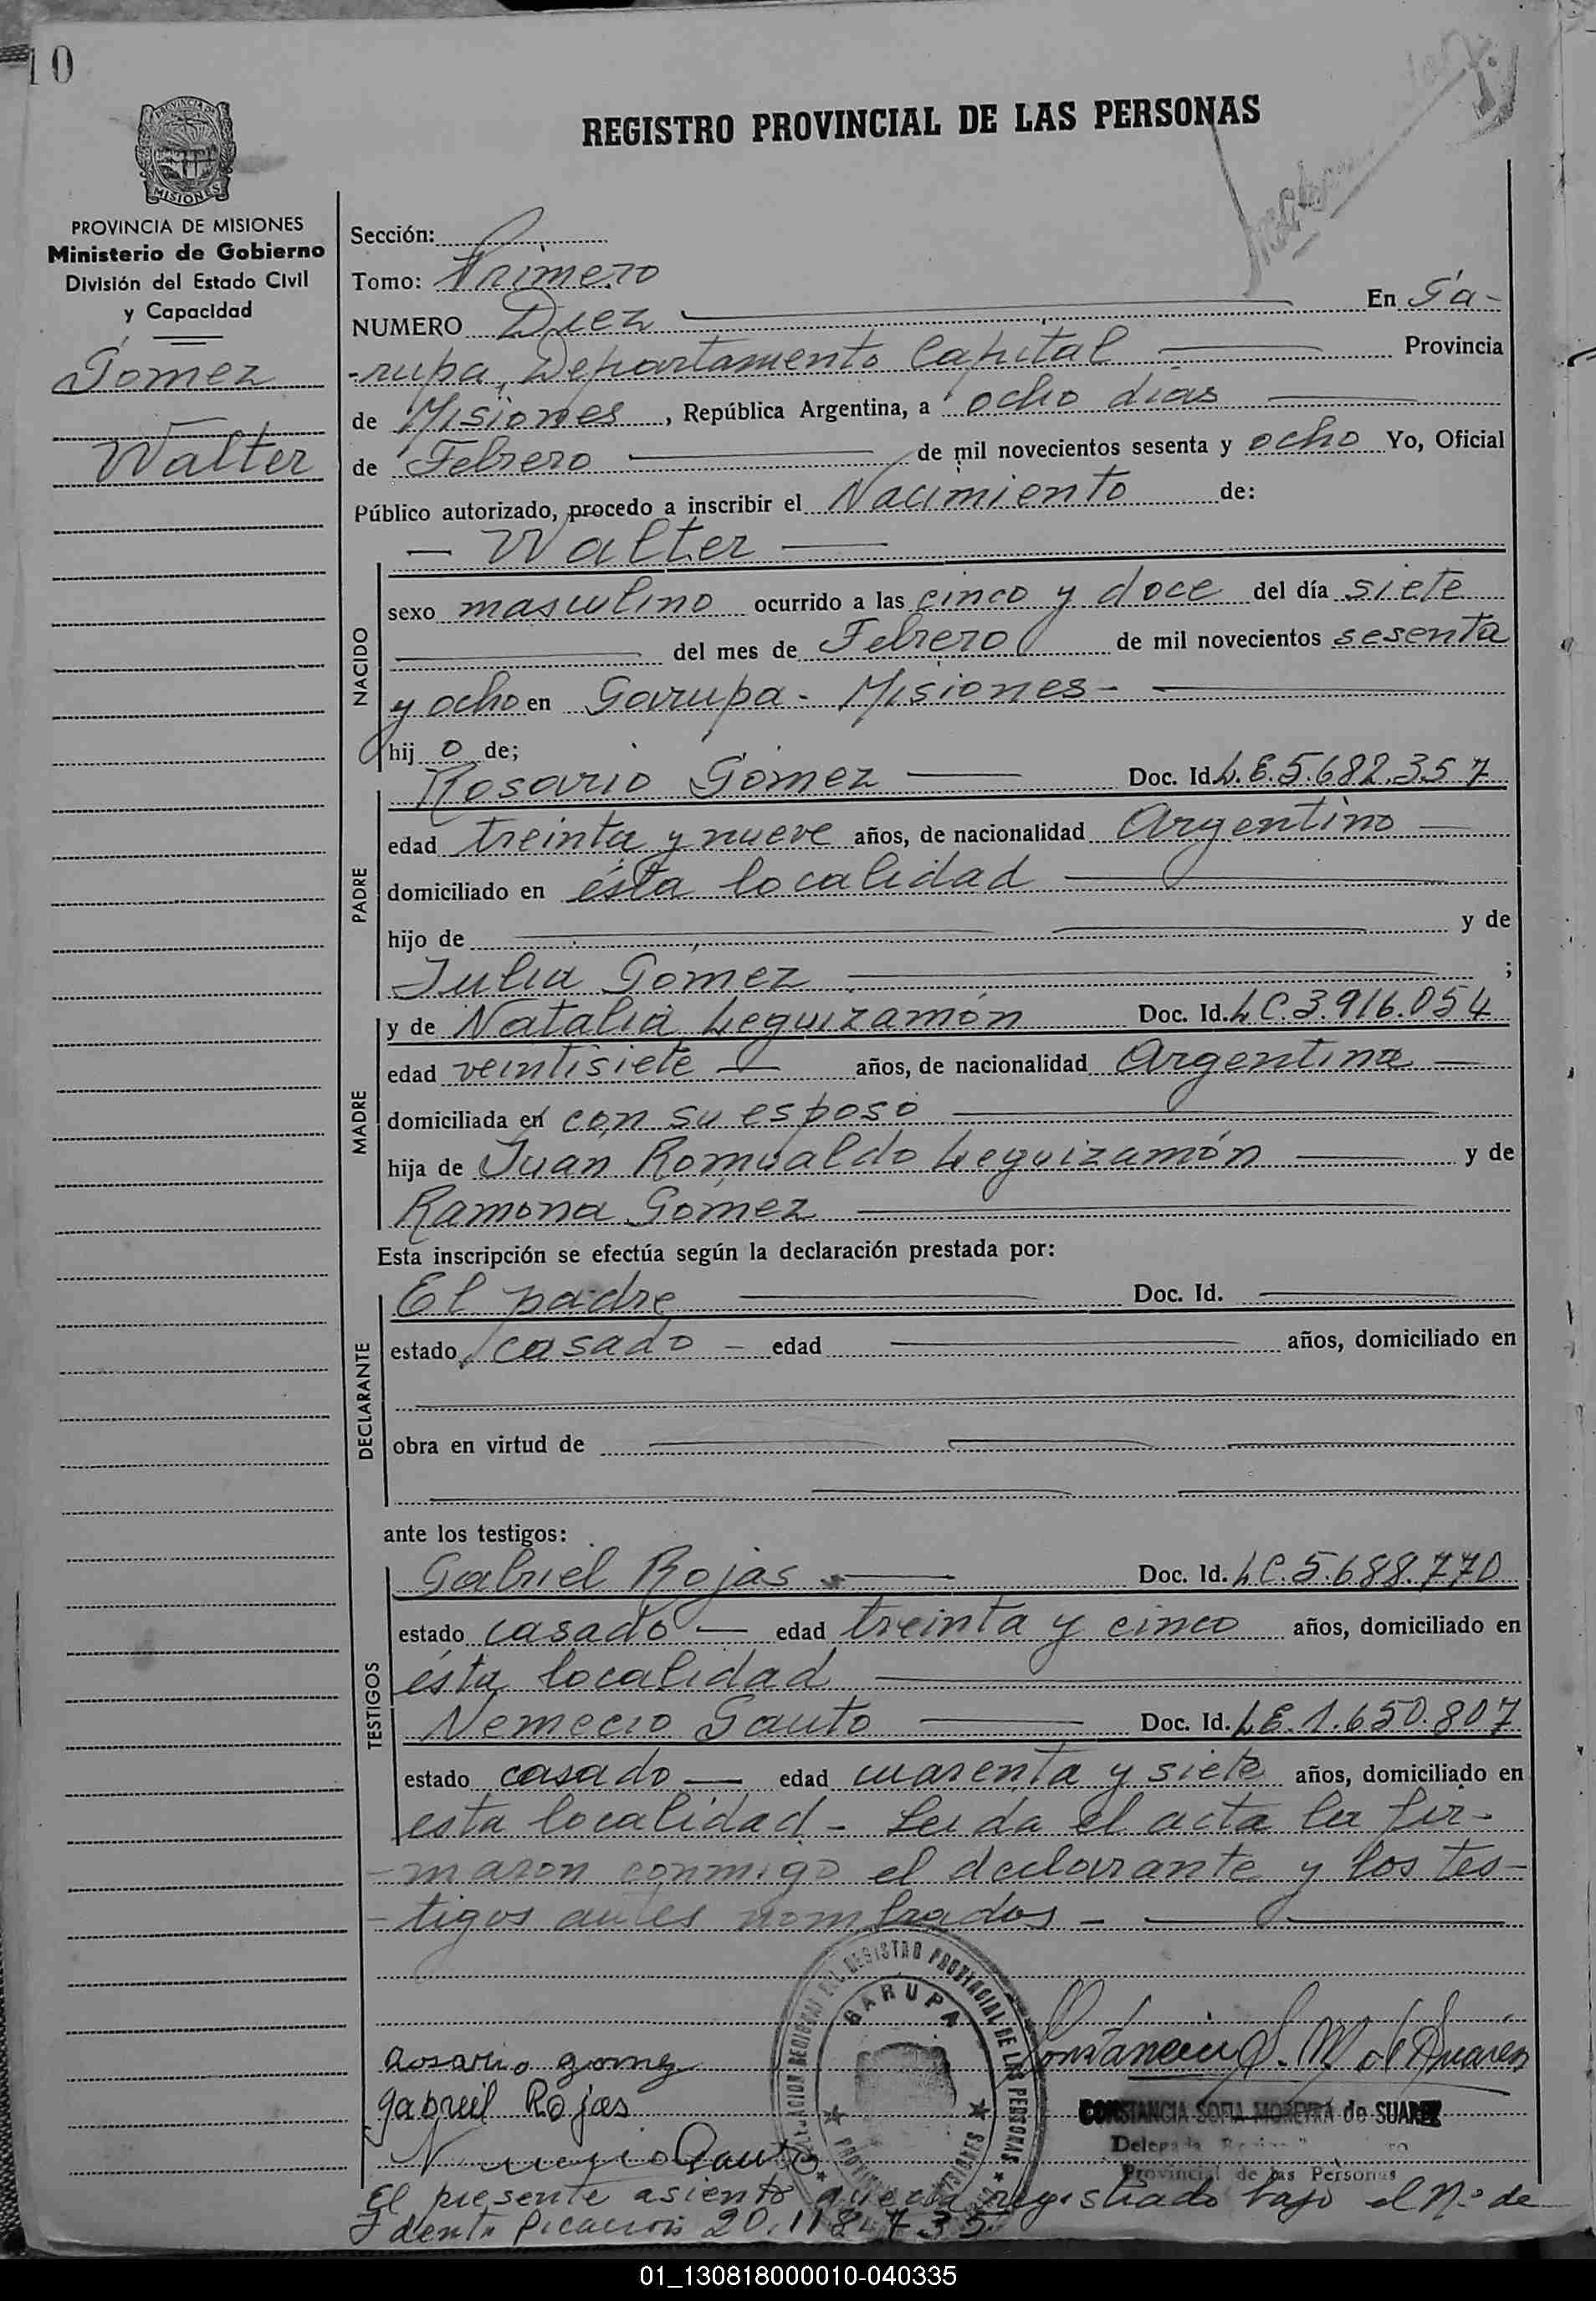 10
PROVINCIA DE
MISIONES
REGISTRO PROVINCIAL DE LAS PERSONAS
PROVINCIA DE MISIONES
Ministerio de Gobierno
División del Estado Civil
y Capacidad
Gómez
Walter
Sección:
Tomo: Primero
NUMERO Diez En Ga-
-rupa, Departamento Capital Provincia
de Misiones, República Argentina, a ocho días
de Febrero de mil novecientos sesenta y ocho Yo, Oficial
Público autorizado, procedo a inscribir el Nacimiento de:
— Walter —
NACIDO
sexo masculino ocurrido a las cinco y doce del día siete
del mes de Febrero de mil novecientos sesenta
y ocho en Garupa - Misiones -
hij o de;
PADRE
Rosario Gómez Doc. Id. L.E. 5.682.357
edad treinta y nueve años, de nacionalidad Argentino
domiciliado en ésta localidad
hijo de y de
Julia Gómez ;
MADRE
y de Natalia Leguizamón Doc. Id. L.C. 3.916.054
edad veintisiete años, de nacionalidad Argentina
domiciliada en con su esposo
hija de Juan Romualdo Leguizamón y de
Ramona Gómez
Esta inscripción se efectúa según la declaración prestada por:
DECLARANTE
El padre Doc. Id.
estado casado - edad años, domiciliado en
obra en virtud de
ante los testigos:
TESTIGOS
Gabriel Rojas Doc. Id. L.C. 5.688.770
estado casado — edad treinta y cinco años, domiciliado en
ésta localidad
Nemecio Gauto Doc. Id. L.E. 1.650.807
estado casado — edad cuarenta y siete años, domiciliado en
esta localidad - Leida el acta la fir-
-maron conmigo el declarante y los tes-
-tigos antes nombrados -
REGISTRO PROVINCIAL DE LAS PERSONAS
GARUPA
Rosario gomez
gabriel Rojas
Constancia S. M. de Suárez
CONSTANCIA SOFIA MOREYRA de SUAREZ
Provincial de las Personas
El presente asiento queda registrado bajo el Nº de
Identificación 20.118.735
01_130818000010-040335